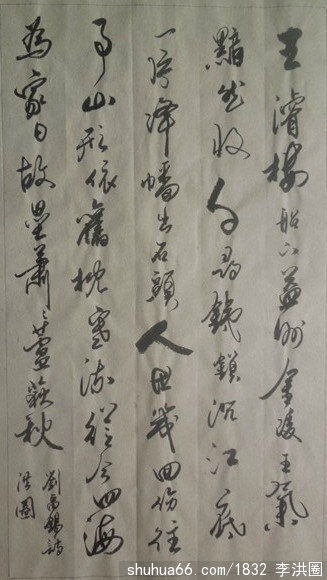 王濬樓船下益州金陵王氣
黯然收千尋鐵鎖沉江底
一片降幡出石頭人世幾回傷往
事山形依舊枕寒流從今四海
為家日故壘蕭々蘆荻秋
劉禹錫詩
洪圈
shuhua66.com/1832 李洪圈